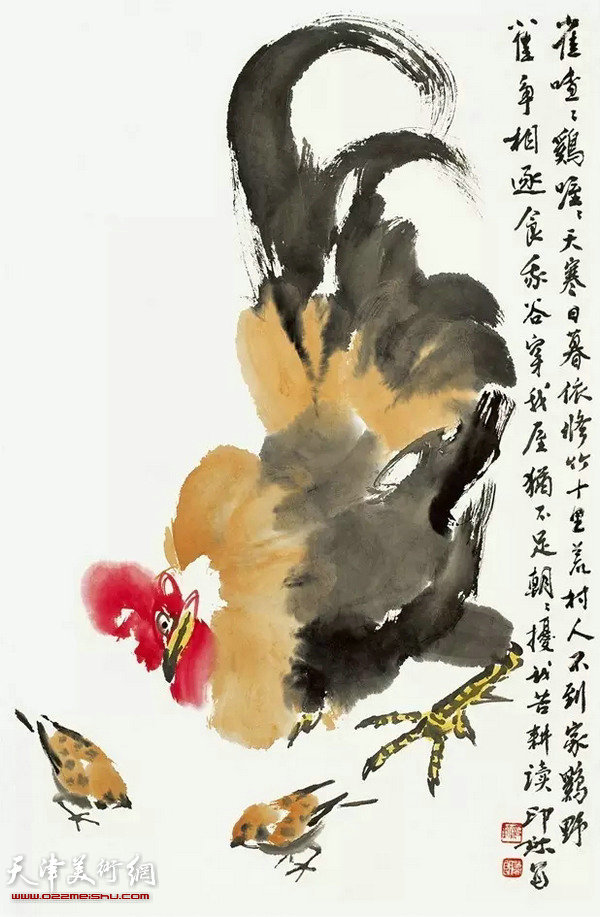 雀喳〻鷄喔〻天寒日暮依脩竹十里荒村人不到家鷄野
雀争相逐食我谷穿我屋猶不足朝〻擾我苦耕读
天津美術網
www.022meishu.com